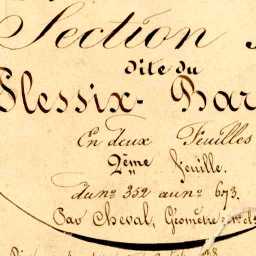 Section
dite du
Plessix-Bar
En deux Feuilles
2ème Feuille.
du no 352 au no 673.
Par Cheval, Géomètre